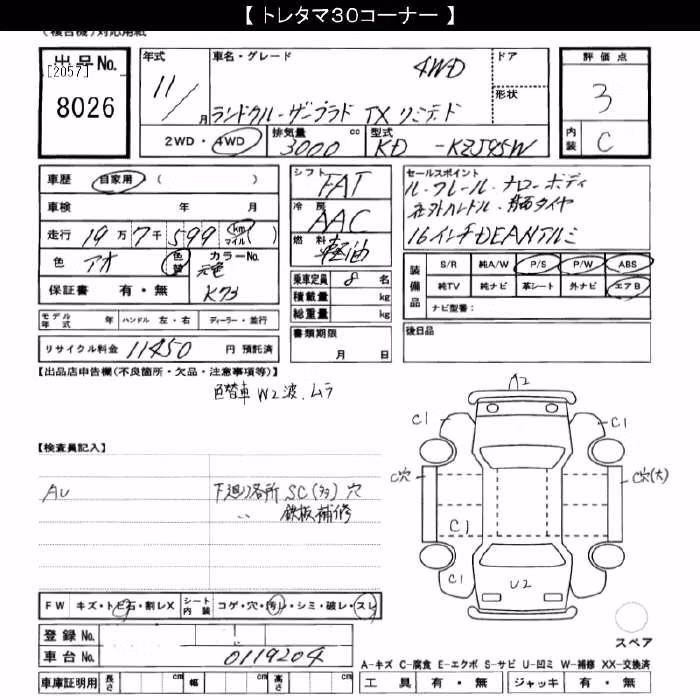 【 トレタマ30コーナー 】
(複合機)対応用紙
出品No.
[2057]
8026
年式
11/
月
車名・グレード
4WD
ランドクル-ザープラド TX リミテッド
ドア
形状
評価点
3
内装
C
2WD・4WD
排気量
3000
cc
型式
KD -KZJ95W
車歴
自家用 ( )
車検 年 月
走行 19万7千599 km マイル
色 アオ
色替
カラーNo.
元色
K73
保証書 有・無
モデル年式 年 ハンドル 左・右 ディーラー・並行
リサイクル料金 11450 円 預託済
シフト
FAT
冷房
AAC
燃料
軽油
乗車定員 8 名
積載量 kg
総重量 kg
書類期限
月 日
セールスポイント
ル-フレール・ナローボディ
社外ハンドル・背面タイヤ
16インチDEANアルミ
装備品
S/R 純A/W P/S P/W ABS
純TV 純ナビ 革シート 外ナビ エアB
ナビ型番:
後日品
【出品店申告欄(不良箇所・欠品・注意事項等)】
色替車 W2波、ムラ
【検査員記入】
AU
下廻り各所 SC(多) 穴
〃 鉄板補修
A2
C1
C1
C穴
C穴(大)
C1
C1
C1
U2
スペア
FW キズ・トビ石・割レX
シート内装 コゲ・穴・汚レ・シミ・破レ・スレ
登録No.
車台No. 0119204
車庫証明用 長さ cm 幅 cm 高さ cm
A-キズ C-腐食 E-エクボ S-サビ U-凹ミ W-補修 XX-交換済
工具 有・無 ジャッキ 有・無